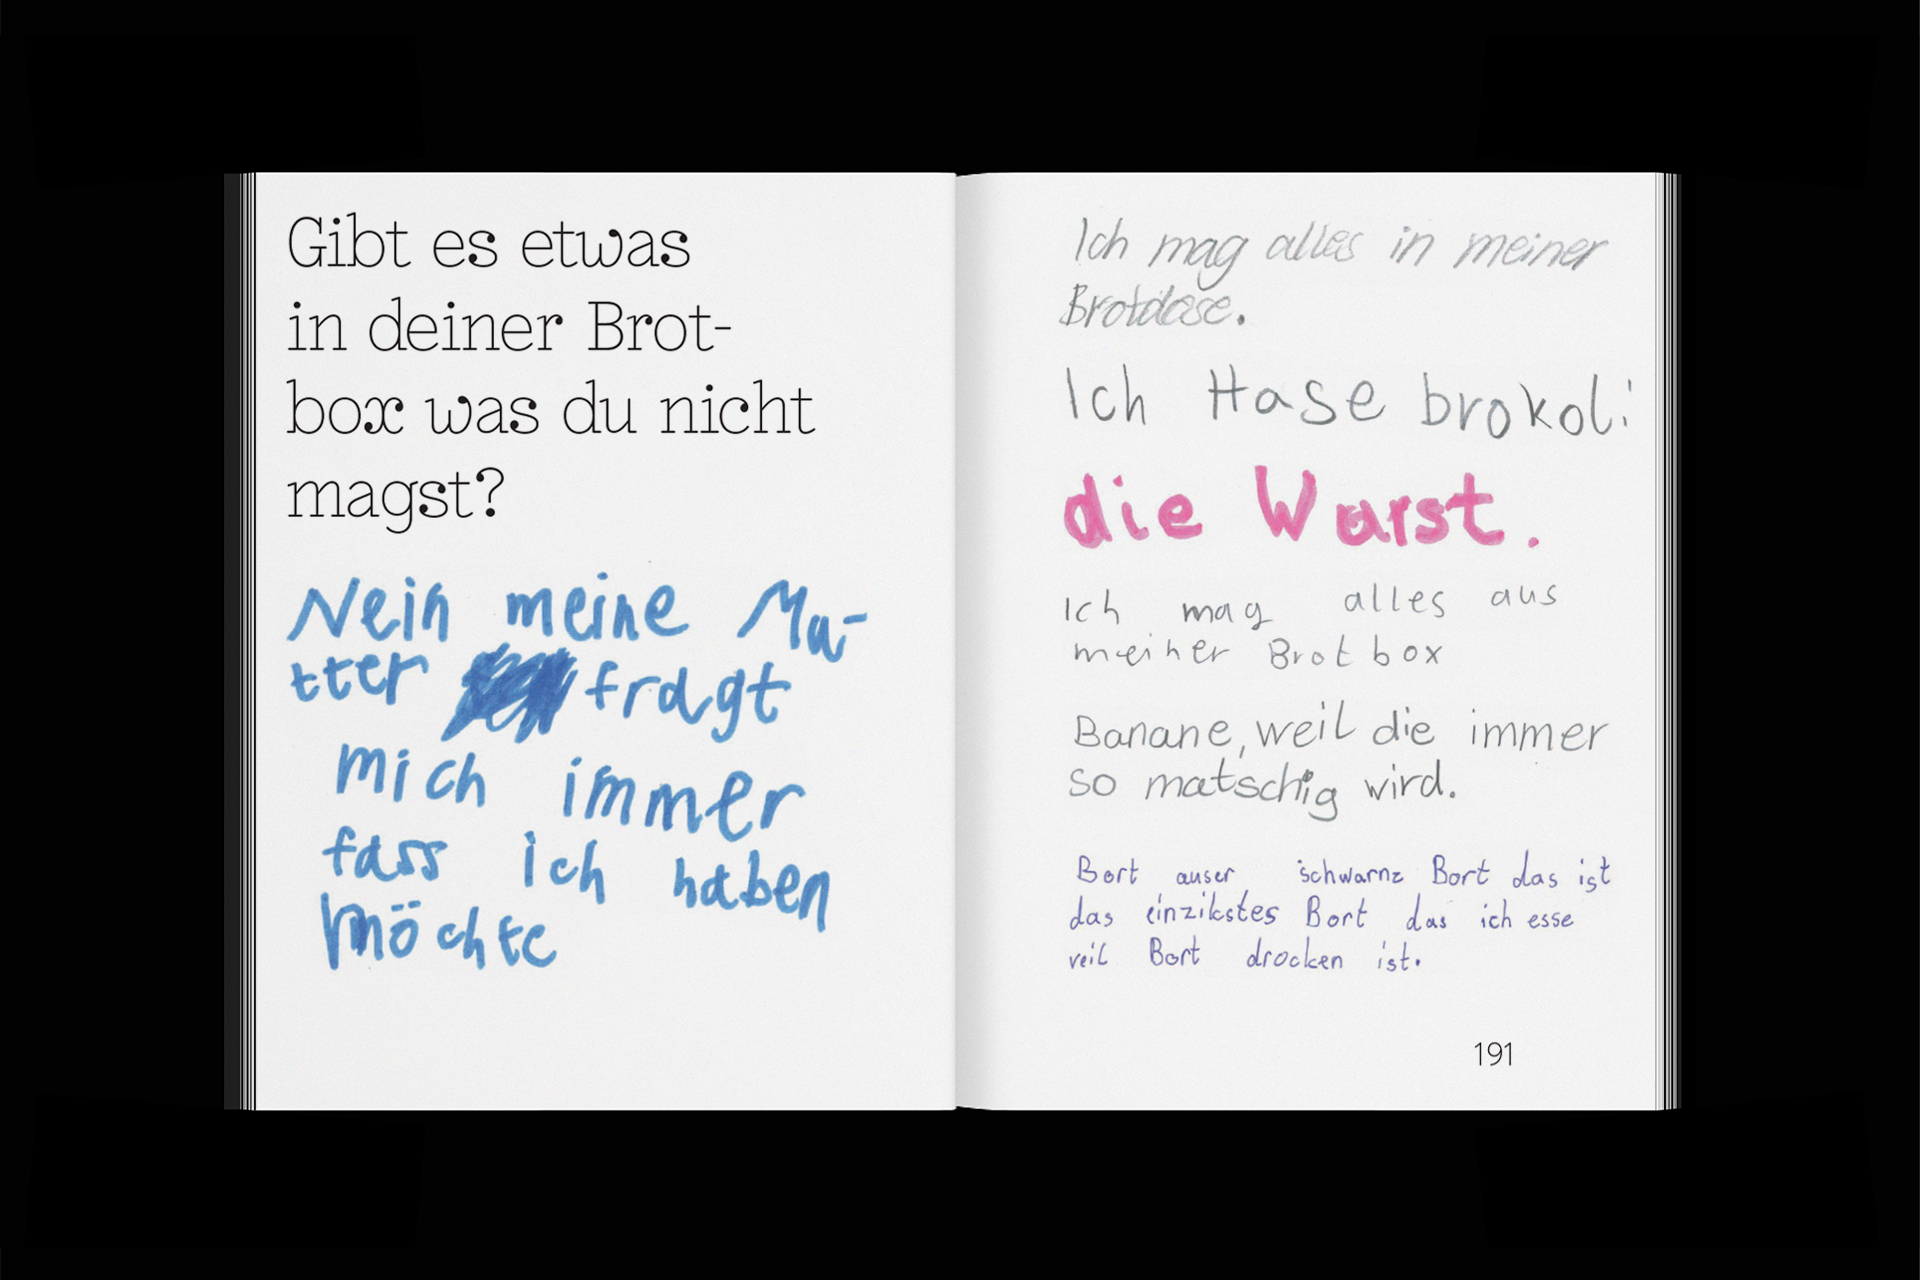 Gibt es etwas
in deiner Brot-
box was du nicht
magst?
Nein meine Mu-
tter fragt
mich immer
fass ich haben
möchte
Ich mag alles in meiner
Brotdose.
Ich Hase brokoli
die Wurst.
Ich mag alles aus
meiner Brotbox
Banane, weil die immer
so matschig wird.
Bort auser schwarnz Bort das ist
das einzikstes Bort das ich esse
veil Bort drocken ist.
191